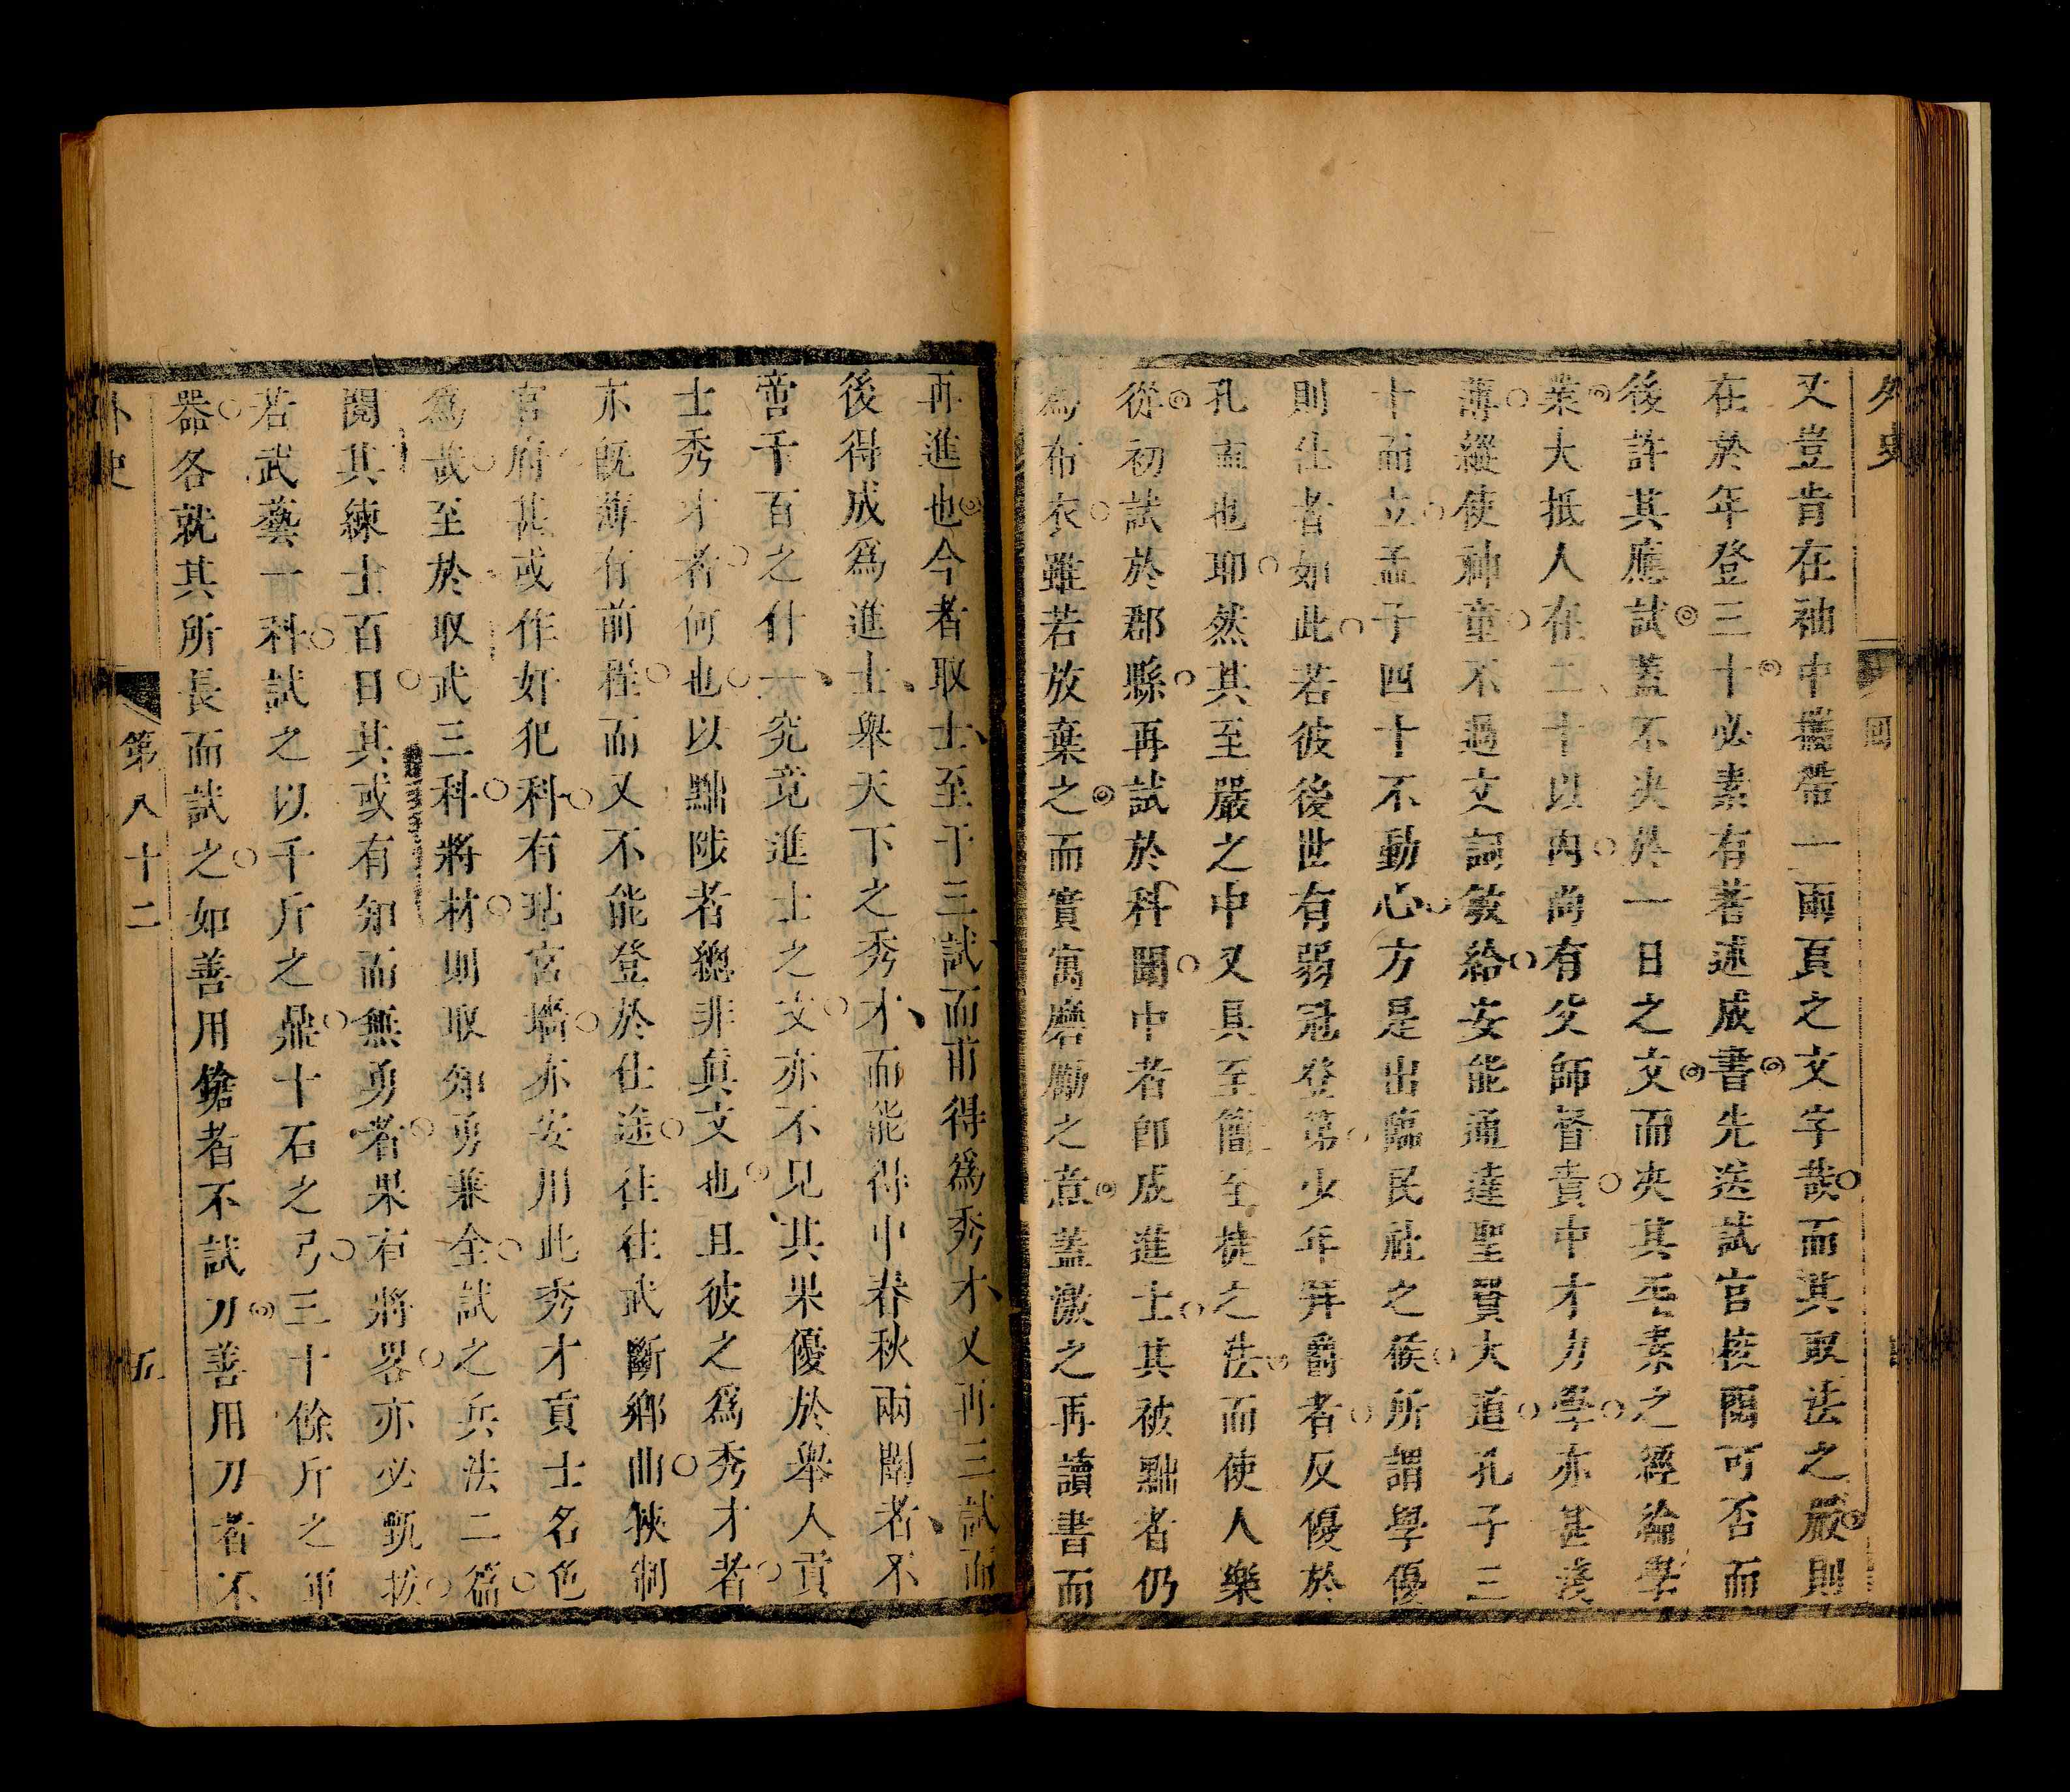 外史
回
又豈肯在袖中攜帶一兩頁之文字哉而其取法之嚴則
在於年登三十必素有著述成書先送試官核閱可否而
後許其應試蓋不決於一日之文而決其平素之經綸學
業大抵人在二十以內尚有父師督責中才力學亦甚淺
薄縱使神童不過文詞敏給安能通達聖賢大道孔子三
十而立孟子四十不動心方是出臨民社之候所謂學優
則仕者如此若彼後世有弱冠登第少年拜爵者反優於
孔孟也耶然其至嚴之中又具至簡至捷之法而使人樂
從初試於郡縣再試於科闈中者即成進士其被黜者仍
為布衣雖若放棄之而實寓磨勵之意蓋激之再讀書而
再進也今者取士至于三試而甫得為秀才又再三試而
後得成為進士舉天下之秀才而能得中春秋兩闈者不
啻千百之什一究竟進士之文亦不見其果優於舉人貢
士秀才者何也以黜陟者總非真文也且彼之為秀才者
亦既薄有前程而又不能登於仕途往往武斷鄉曲挾制
官府甚或作奸犯科有玷宮墻亦安用此秀才貢士名色
為哉至於取武三科將材則取知勇兼全試之兵法二篇
閱其練士百日其或有知而無勇者果有將畧亦必甄拔
若武藝一科試之以千斤之鼎十石之弓三十餘斤之軍
器各就其所長而試之如善用鎗者不試刀善用刀者不
外史
第八十二
五